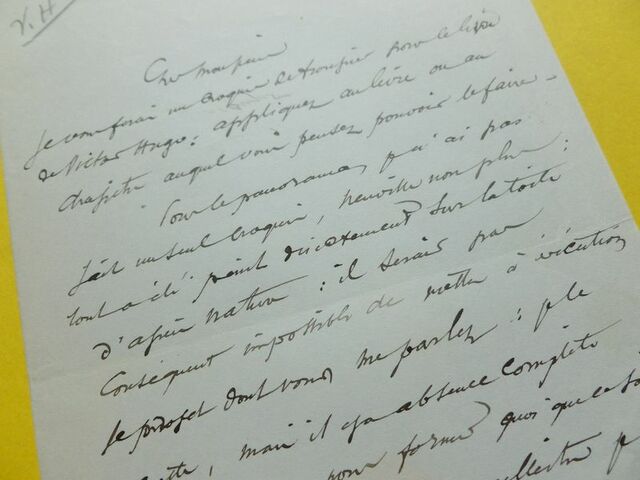 V. H
Cher monsieur
Je vous ferai un croquis de troupier pour le livre
de Victor Hugo : appliquez au livre ou au
chapitre auquel vous pensez pouvoir le faire -
Pour le panorama, je n'ai pas
fait un seul croquis, Neuville non plus :
tout a été peint directement sur la toile
d'après nature : il serait par
conséquent impossible de mettre à exécution
le projet dont vous me parlez : je le
mais il y a absence complète
pour former quoi que ce